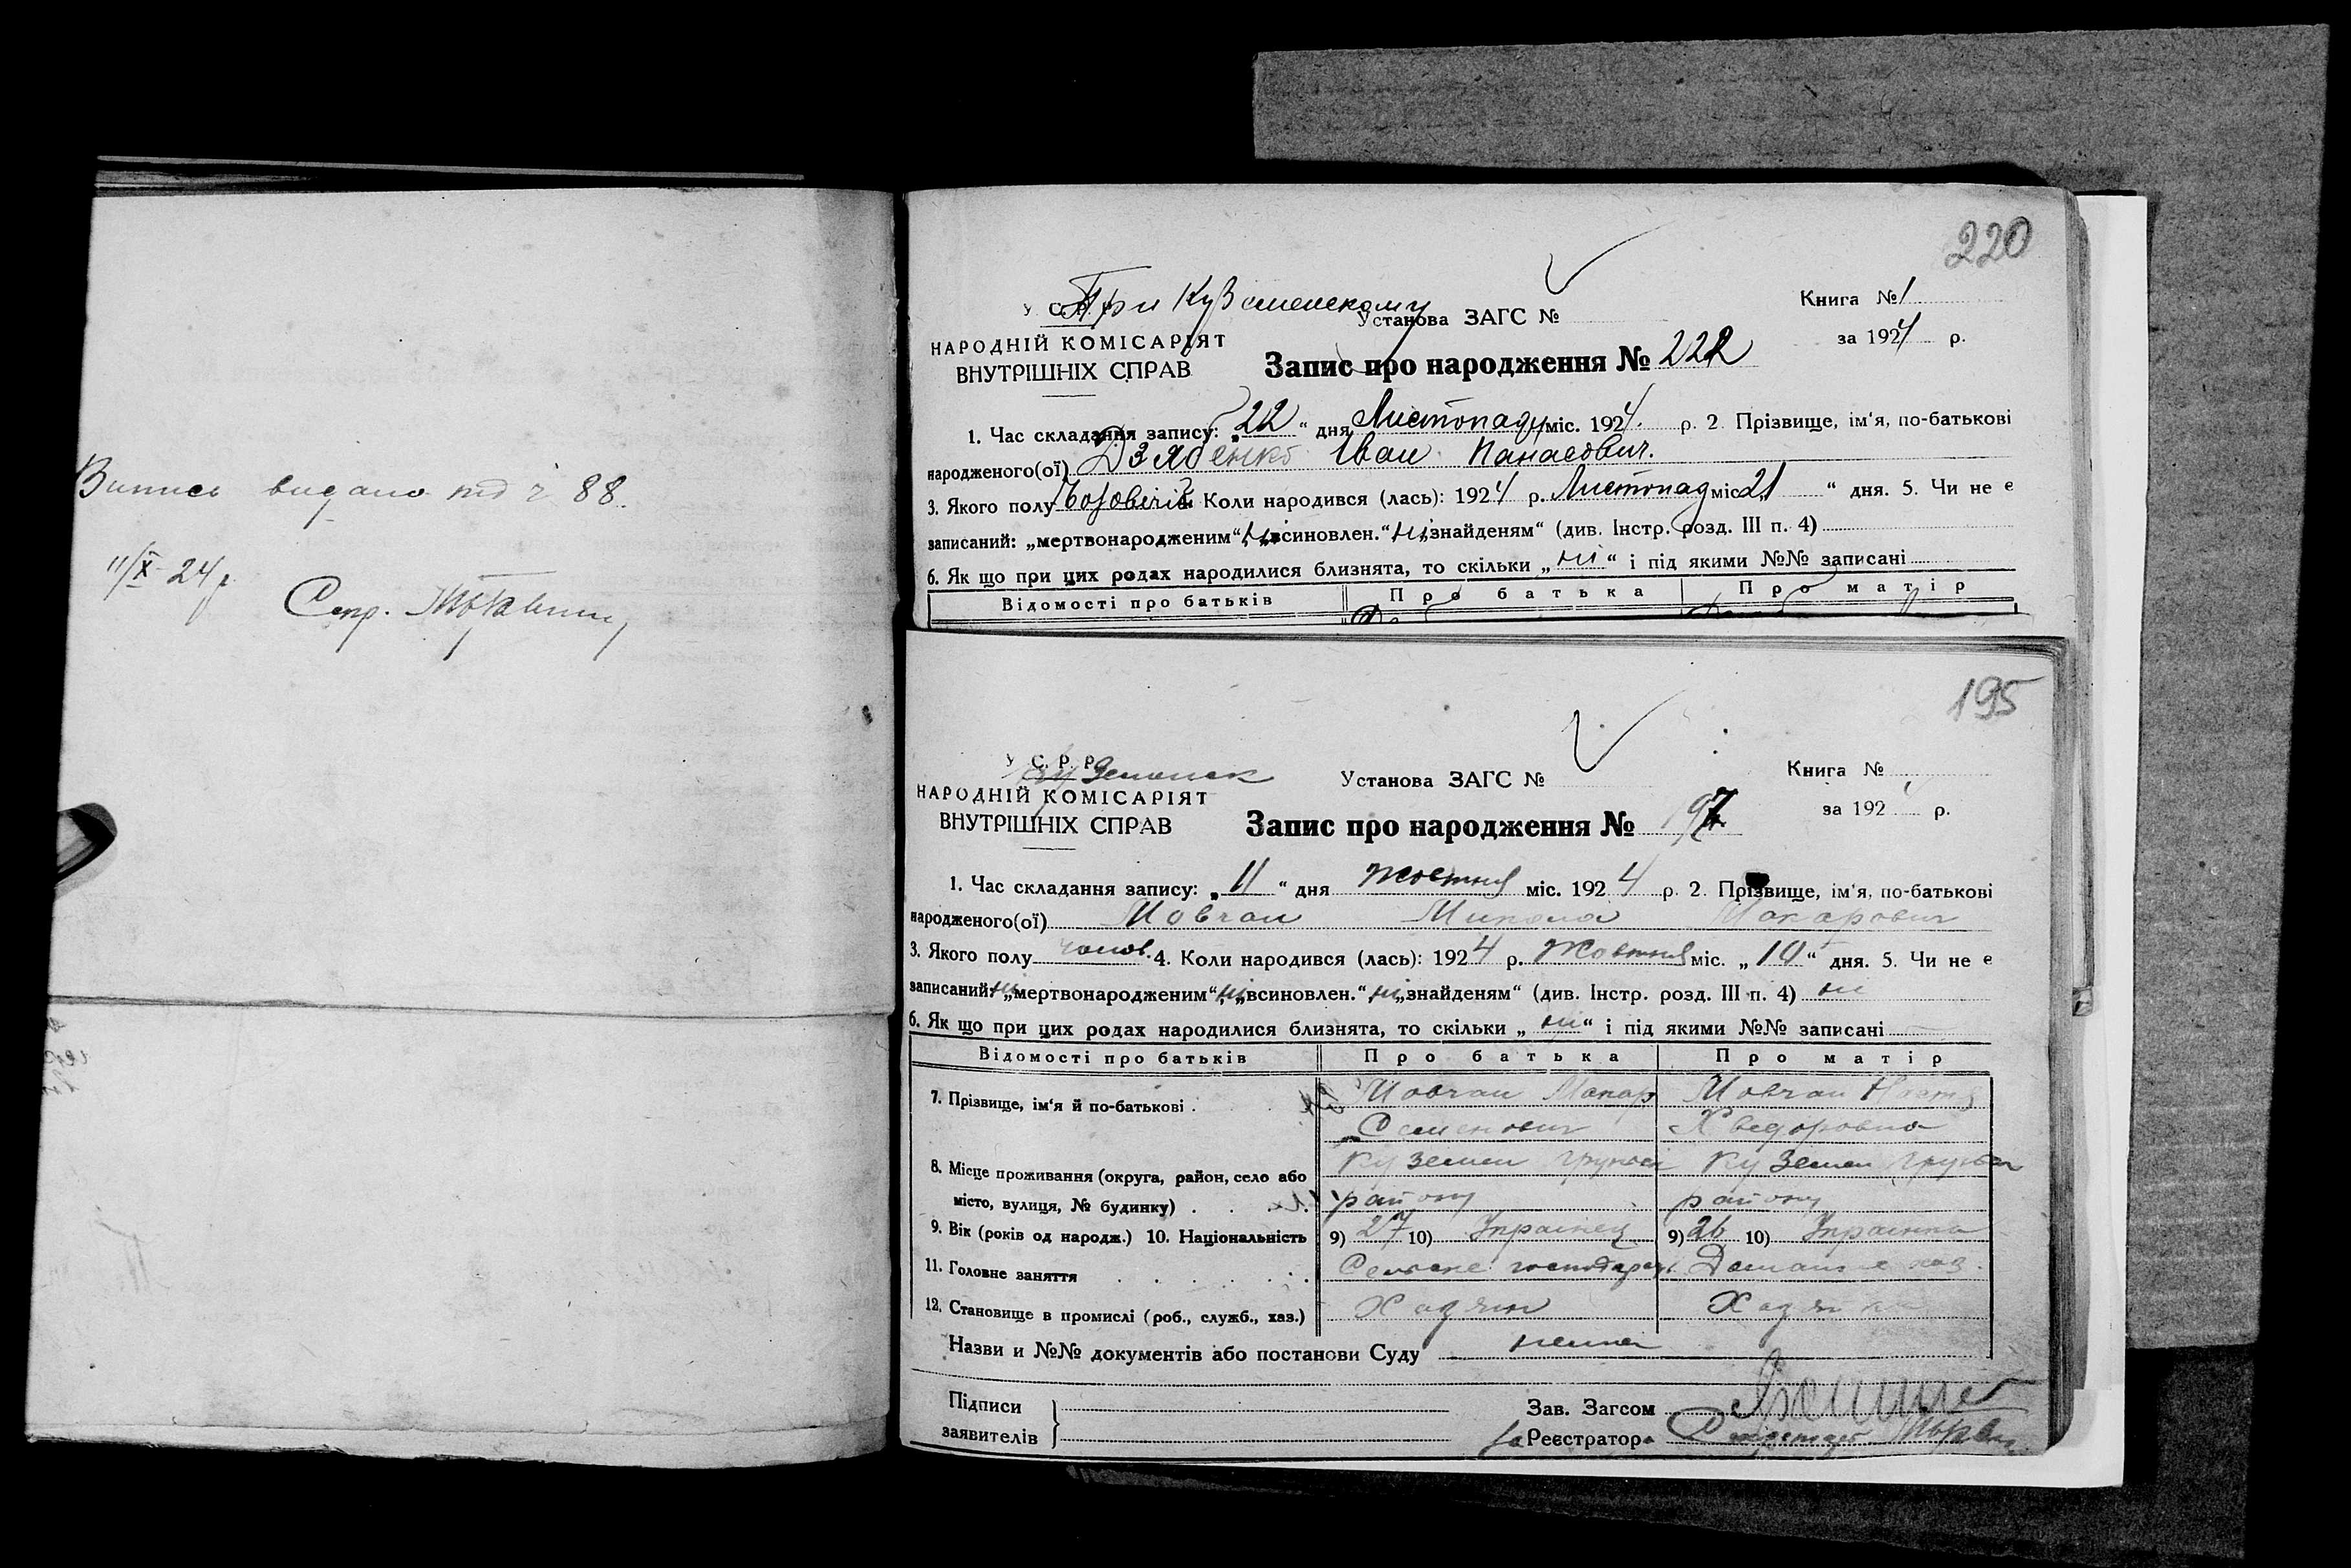 Випись видано під ч 88.
11/X 24 р
Секр.
220
При Куземенському
У С. Р. Р.
Установа ЗАГС №
Книга № 1
НАРОДНІЙ КОМІСАРІЯТ
ВНУТРІШНІХ СПРАВ
за 1924 р.
Запис про народження № 222
1. Час складання запису: „22“ дня Листопаду міс. 1924. р. 2. Прізвище, ім'я, по-батькові
народженого(ої) Дзябенко Іван Панасович.
3. Якого полу 4. Коли народився (лась): 1924 р. Листопад міс. 21 “ дня. 5. Чи не є
записаний: „мертвонародженим“, ні „всиновлен.“ ні „знайденям“ (див. Інстр. розд. III п. 4)
6. Як що при цих родах народилися близнята, то скільки „ні“ і під якими №№ записані
Відомості про батьків Про батька Про матір
195
У С. Р. Р.
Куземенск
Установа ЗАГС №
Книга №
НАРОДНІЙ КОМІСАРІЯТ
ВНУТРІШНІХ СПРАВ
за 192 р.
Запис про народження № 197
1. Час складання запису: „11“ дня Жовтня міс. 1924 р. 2. Прізвище, ім'я, по-батькові
народженого(ої) Мовчан Микола Макарович
3. Якого полу чолов. 4. Коли народився (лась): 1924 р. Жовтня міс. „10“ дня. 5. Чи не є
записаний: ні „мертвонародженим“, ні „всиновлен.“, ні „знайденям“ (див. Інстр. розд. III п. 4) ні
6. Як що при цих родах народилися близнята, то скільки „ні“ і під якими №№ записані
Відомості про батьків Про батька Про матір
7. Прізвище, ім'я й по-батькові . Мовчан Макар Мовчан Настя
Семенович Хведоровна
8. Місце проживання (округа, район, село або Куземен Грунськ Куземен Грунськ
місто, вулиця, № будинку) . району району
9. Вік (років од народж.) 10. Національність 9) 27 10) Українец 9) 26 10) Українка
11. Головне заняття Сельске господар. Домашне хаз.
12. Становище в промислі (роб., служб., хаз.) Хазяин Хазяйка
Назви и №№ документів або постанови Суду нема
Підписи
заявителів
Зав. Загсом
за Реєстратора Секретарь